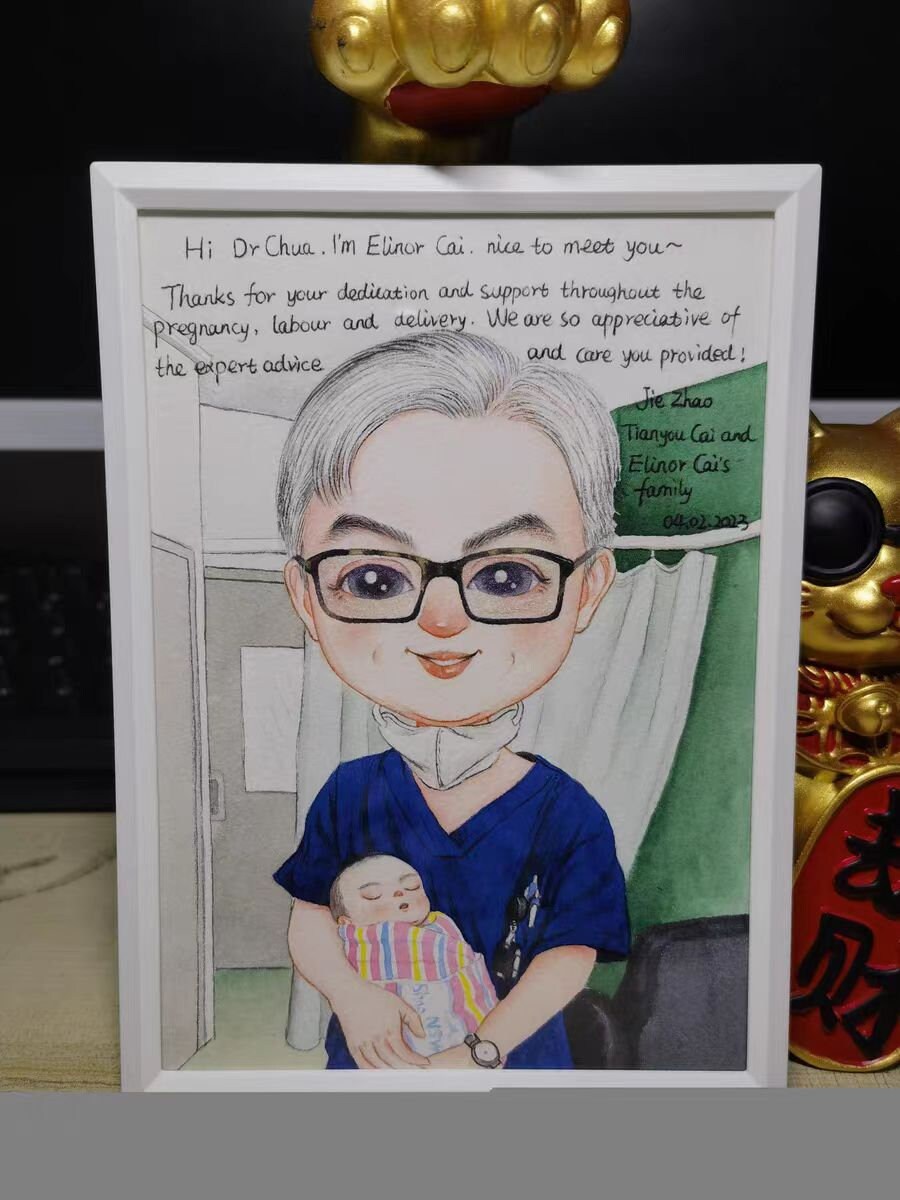 Hi Dr Chua. I'm Elinor Cai. nice to meet you~
Thanks for your dedication and support throughout the
pregnancy, labour and delivery. We are so appreciative of
the expert advice and care you provided!
Jie Zhao
Tianyou Cai and
Elinor Cai's
family
04.02.2023